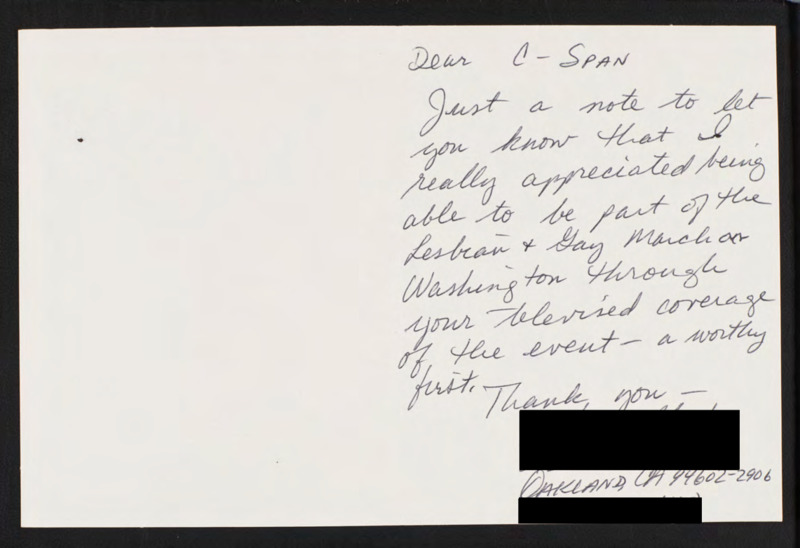 Dear C-SPAN
Just a note to let
you know that I
really appreciated being
able to be part of the
Lesbian + Gay March on
Washington through
your televised coverage
of the event — a worthy
first. Thank you —
OAKLAND CA 94602-2906